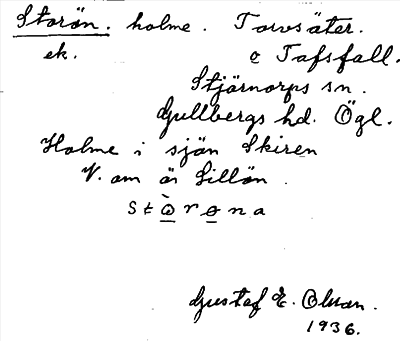 Storön. holme. Torvsäter.
ek. o Tafsfall.
Stjärnorps sn.
Gullbergs hd. Ögl.
Holme i sjön Skiren
V. om ön Lillön.
stò̱rø̱na
Gustaf E. Olsson.
1936.